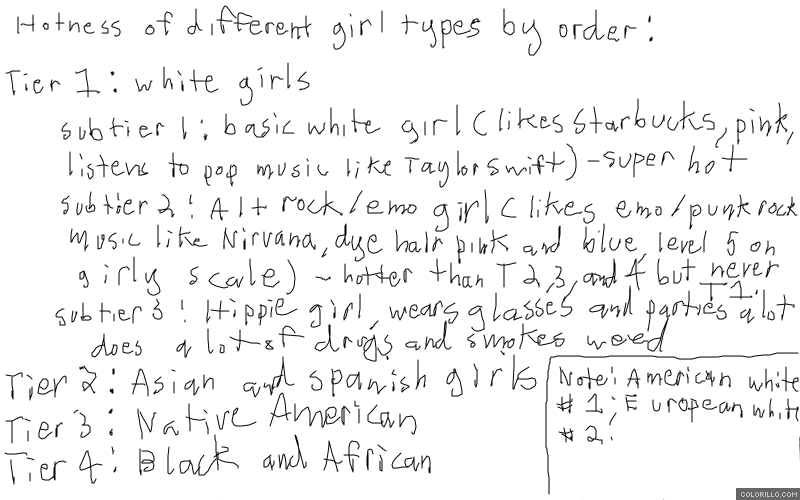 Hotness of different girl types by order:
Tier 1: white girls
subtier 1: basic white girl (likes Starbucks, pink,
listens to pop music like Taylor Swift) - super hot
subtier 2: Alt rock/emo girl (likes emo/punk rock
music like Nirvana, dye hair pink and blue, level 5 on
girly scale) ~ hotter than T 2,3, and 4 but never
T1.
subtier 3: Hippie girl, wears glasses and parties a lot
does a lot of drugs and smokes weed
Tier 2: Asian and spanish girls
Tier 3: Native American
Tier 4: Black and African
Note: American white
# 1; European white
# 2.
COLORILLO.COM